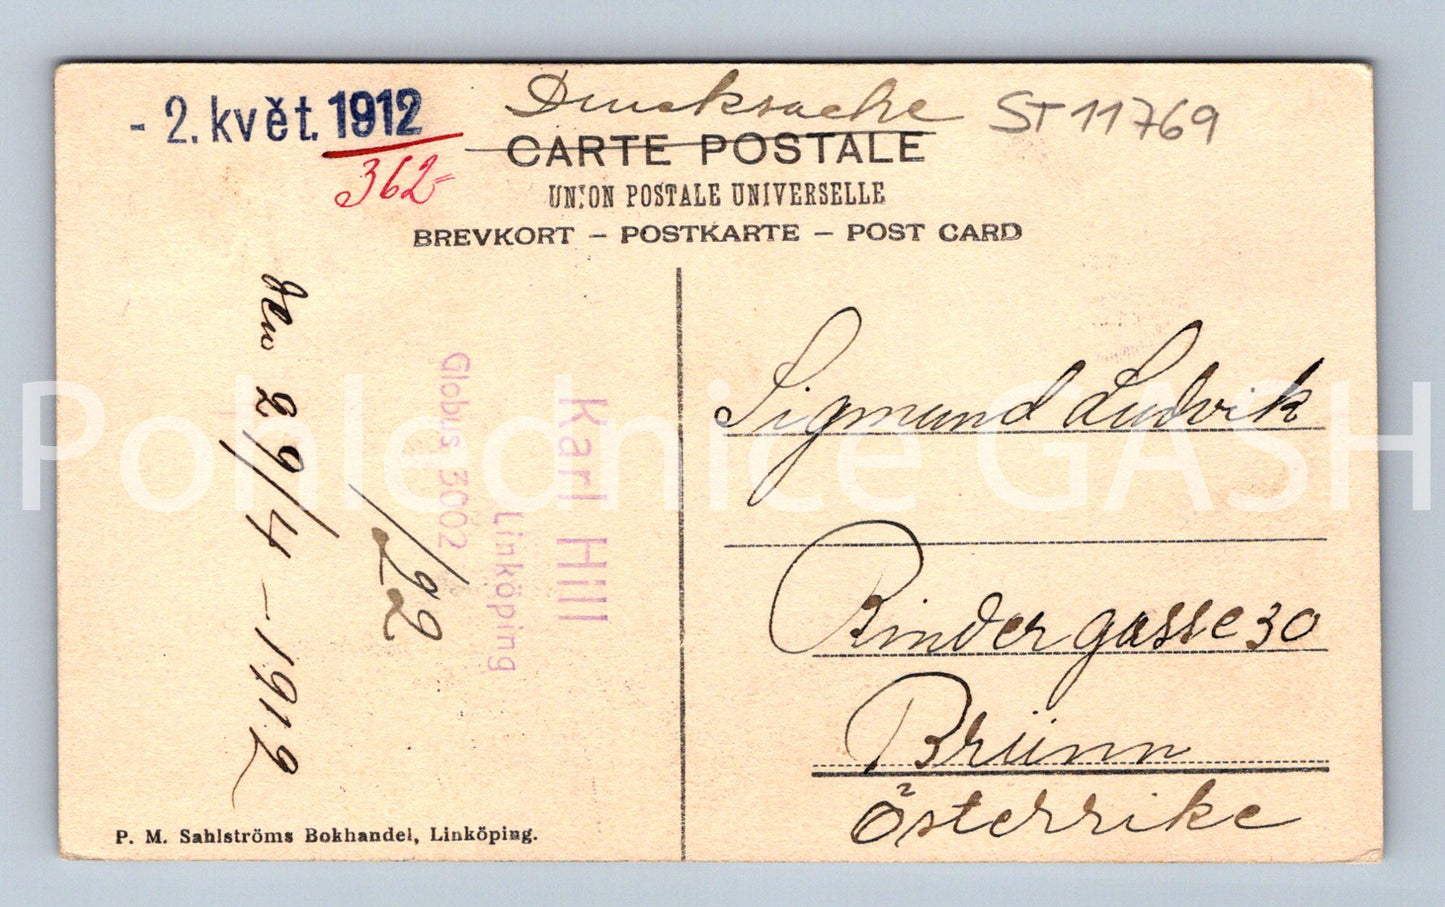 Drucksache
ST 11769
- 2. květ. 1912
362-
CARTE POSTALE
UNION POSTALE UNIVERSELLE
BREVKORT – POSTKARTE – POST CARD
den 29/4 - 1912
/92
Karl Hill
Linköping
Globus 5002
Sigmund Ludvik
Rindergasse 30
Brünn
Österrike
P. M. Sahlströms Bokhandel, Linköping.
Pohlednice GASH